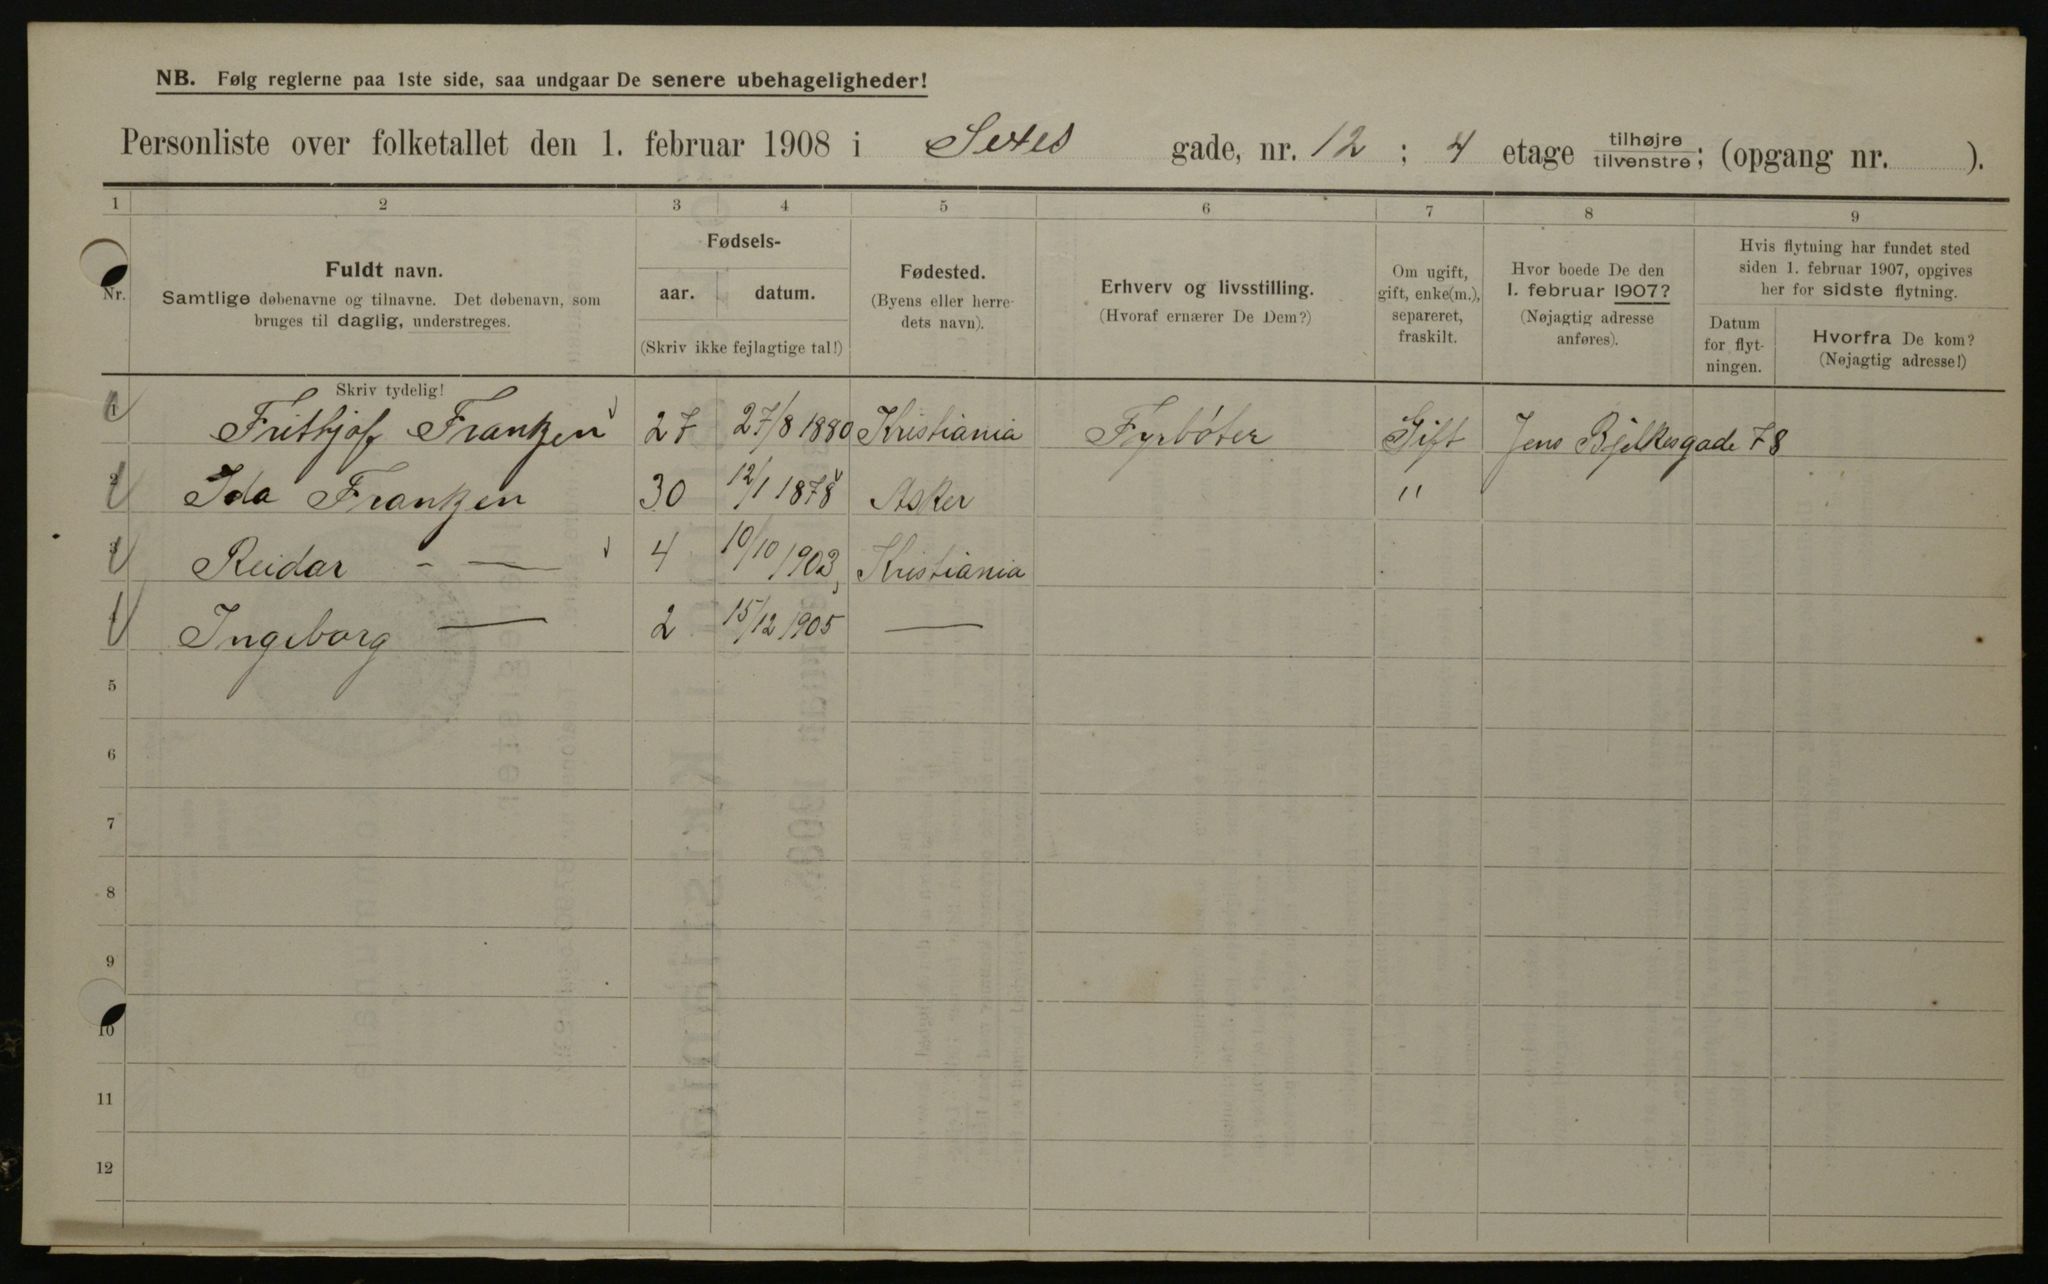 NB. Følg reglerne paa 1ste side, saa undgaar De senere ubehageligheder!
Personliste over folketallet den 1. februar 1908 i Sexes gade, nr. 12 ; 4 etage tilhøjre tilvenstre; (opgang nr. ).
1 2 3 4 5 6 7 8 9
Nr.
Fuldt navn.
Samtlige døbenavne og tilnavne. Det døbenavn, som
bruges til daglig, understreges.
Fødsels-
aar. datum.
(Skriv ikke fejlagtige tal!)
Fødested.
(Byens eller herre-
dets navn).
Erhverv og livsstilling.
(Hvoraf ernærer De Dem?)
Om ugift,
gift, enke(m.),
separeret,
fraskilt.
Hvor boede De den
1. februar 1907?
(Nøjagtig adresse
anføres).
Hvis flytning har fundet sted
siden 1. februar 1907, opgives
her for sidste flytning.
Datum
for flyt-
ningen.
Hvorfra De kom?
(Nøjagtig adresse!)
Skriv tydelig!
1 Frithjof Frantzen 27 27/8 1880 Kristiania Fyrbøter Gift Jens Bjelkesgade 78
2 Ida Frantzen 30 12/1 1878 Asker "
3 Reidar - — 4 10/10 1903 Kristiania
4 Ingeborg — 2 15/12 1905 —
5
6
7
8
9
10
11
12